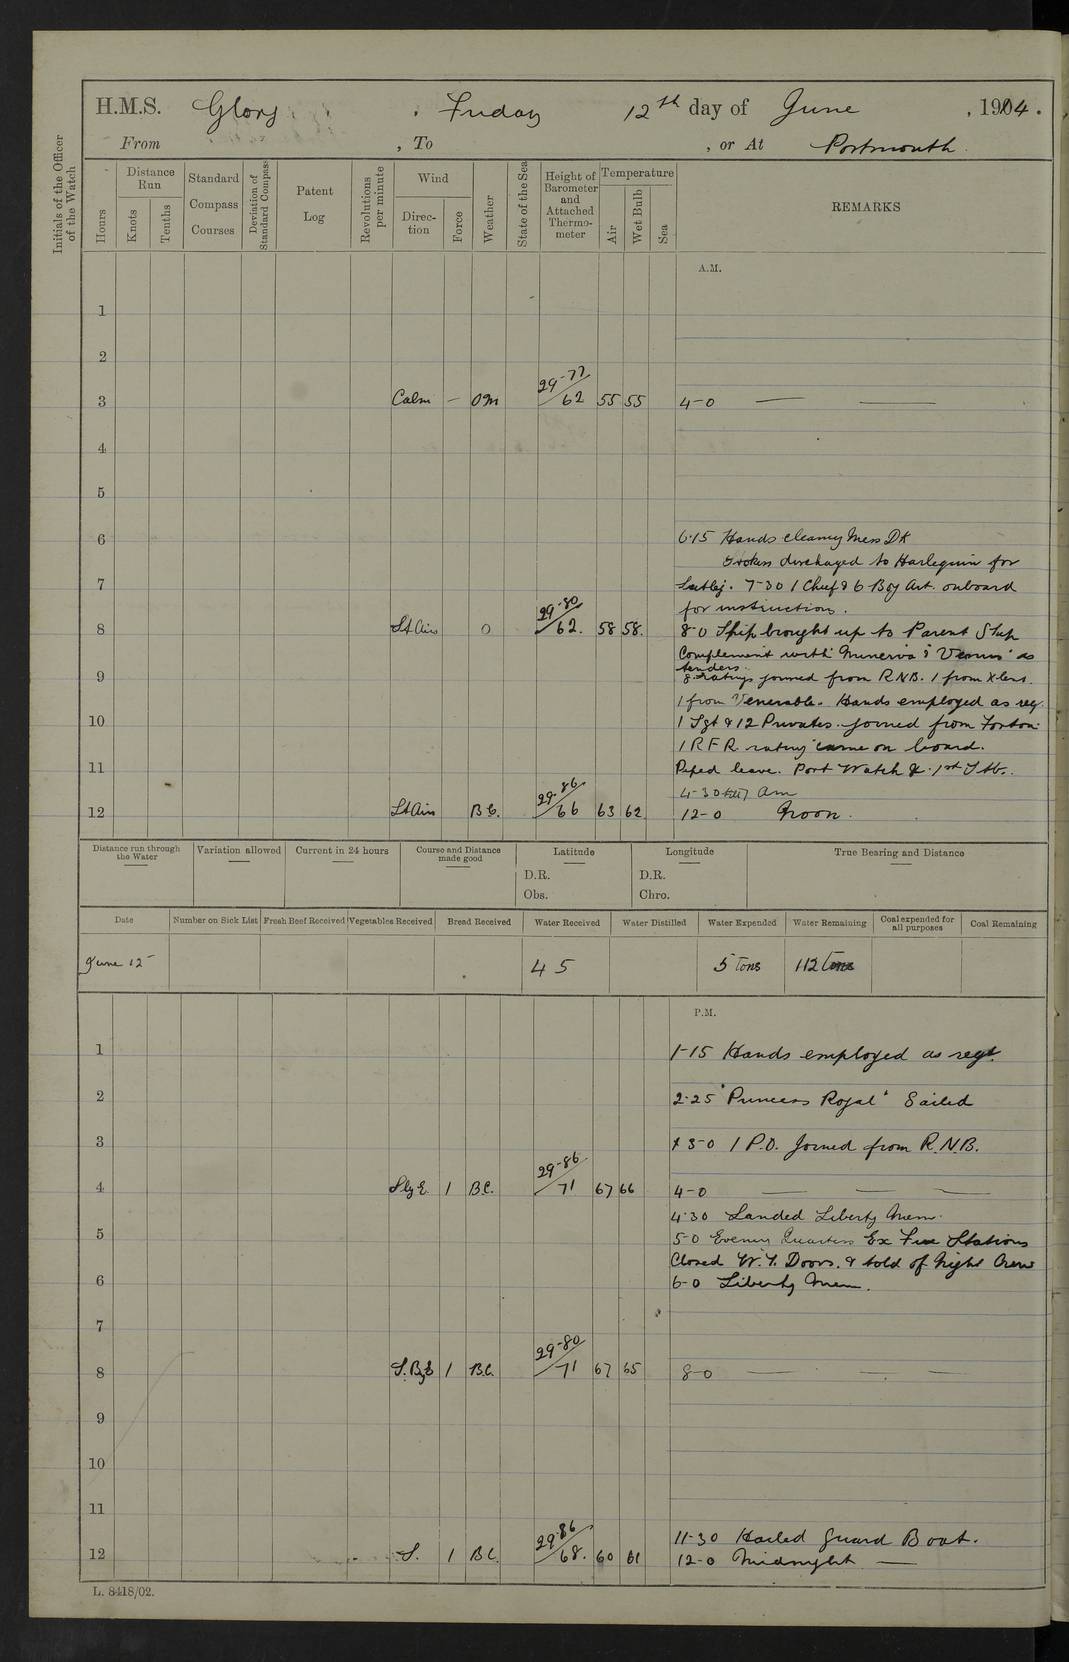 H.M.S. Glory, Friday 12th day of June, 1914.
From , To , or At Portsmouth
Initials of the Officer of the Watch
Hours
Distance Run
Knots
Tenths
Standard Compass Courses
Deviation of Standard Compass
Patent Log
Revolutions per minute
Wind
Direction
Force
Weather
State of the Sea
Height of Barometer and Attached Thermometer
Temperature
Air
Wet Bulb
Sea
REMARKS
A.M.
1
2
3 Calm — OM 29-77/62 55 55 4-0 — —
4
5
6 6.15 Hands cleaning Mess Dk
Stokers discharged to Harlequin for
7 Sutlej. 7-30 1 Chief & 6 Boy Art. onboard
for instruction.
8 Lt Airs O 29-80/62. 58 58. 8-0 Ship brought up to Parent Ship
Complement with Minerva & "Venus" as
tenders.
9 8 ratings joined from RNB. 1 from Xlent.
1 from Venerable. Hands employed as req.
10 1 Sgt & 12 Privates joined from Forton
1 RFR rating came on board.
11 Piped leave. Port Watch & 1st
4-30 am
12 Lt Airs B C. 29-86/66 63 62 12-0 Noon.
Distance run through the Water
Variation allowed
Current in 24 hours
Course and Distance made good
Latitude
D.R.
Obs.
Longitude
D.R.
Chro.
True Bearing and Distance
Date
Number on Sick List
Fresh Beef Received
Vegetables Received
Bread Received
Water Received
Water Distilled
Water Expended
Water Remaining
Coal expended for all purposes
Coal Remaining
June 12 45 5 Tons 112 Tons
P.M.
1 1-15 Hands employed as reqd.
2 2-25 "Princess Royal" Sailed
3 x 3-0 1 P.O. Joined from R.N.B.
4 Sly E. 1 B.C. 29-86/71 67 66 4-0 — — —
4.30 Landed Liberty Men.
5 5-0 Evening Quarters Ex Fire Stations
Closed W.T. Doors. & told of Night Crew
6 6-0 Liberty Men.
7
8 S.B.E 1 B.C. 29-80/71 67 65 8-0 — — —
9
10
11
11-30 Hailed Guard Boat.
12 S. 1 B.C. 29.86/68. 60 61 12-0 Midnight —
L. 8418/02.